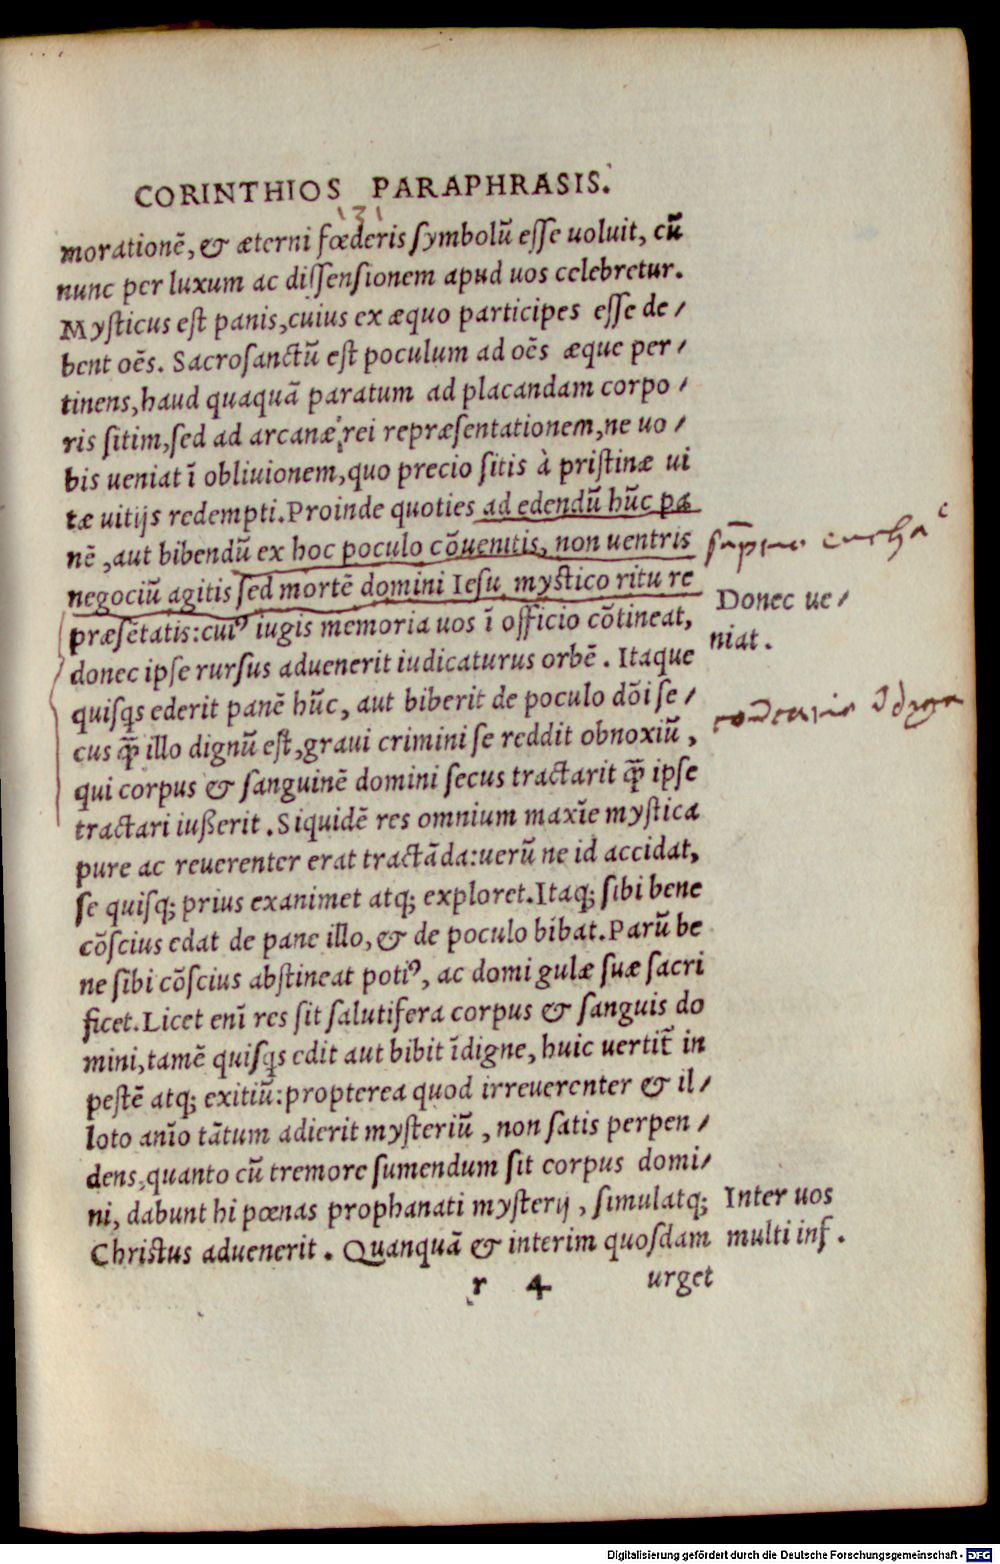 CORINTHIOS PARAPHRASIS.
131
morationē, & æterni fœderis ſymbolū eſſe uoluit, cū
nunc per luxum ac diſſenſionem apud uos celebretur.
Myſticus eſt panis, cuius ex æquo participes eſſe de/
bent oēs. Sacroſanctū eſt poculum ad oēs æque per/
tinens, haud quaquā paratum ad placandam corpo/
ris ſitim, ſed ad arcanæ rei repræſentationem, ne uo/
bis ueniat ī obliuionem, quo precio ſitis à priſtinæ ui
tæ uitijs redempti. Proinde quoties ad edendū hūc pa
nē, aut bibendū ex hoc poculo cōuenitis, non uentris
negociū agitis ſed mortē domini Ieſu myſtico ritu re
præſētatis: cuiꝰ iugis memoria uos ī officio cōtineat,
Donec ue/
niat.
donec ipſe rurſus aduenerit iudicaturus orbē. Itaque
quiſqs ederit panē hūc, aut biberit de poculo dōi ſe/
cus q̄̃ illo dignū eſt, graui crimini ſe reddit obnoxiū,
qui corpus & ſanguinē domini ſecus tractarit q̄̃ ipſe
tractari iußerit. Siquidē res omnium maxīe myſtica
pure ac reuerenter erat tractāda: uerū ne id accidat,
ſe quiſq; prius exanimet atq; exploret. Itaq; ſibi bene
cōſcius edat de pane illo, & de poculo bibat. Parū be
ne ſibi cōſcius abſtineat potiꝰ, ac domi gulæ ſuæ ſacri
ficet. Licet enī res ſit ſalutifera corpus & ſanguis do
mini, tamē quiſqs edit aut bibit īdigne, huic uertit̄ in
peſtē atq; exitiū: propterea quod irreuerenter & il/
loto anīo tātum adierit myſteriū, non ſatis perpen/
dens, quanto cū tremore ſumendum ſit corpus domi/
ni, dabunt hi pœnas prophanati myſterij, ſimulatq;
Chriſtus aduenerit. Quanquā & interim quoſdam
Inter uos
multi inf.
r 4
urget
Digitalisierung gefördert durch die Deutsche Forschungsgemeinschaft - DFG